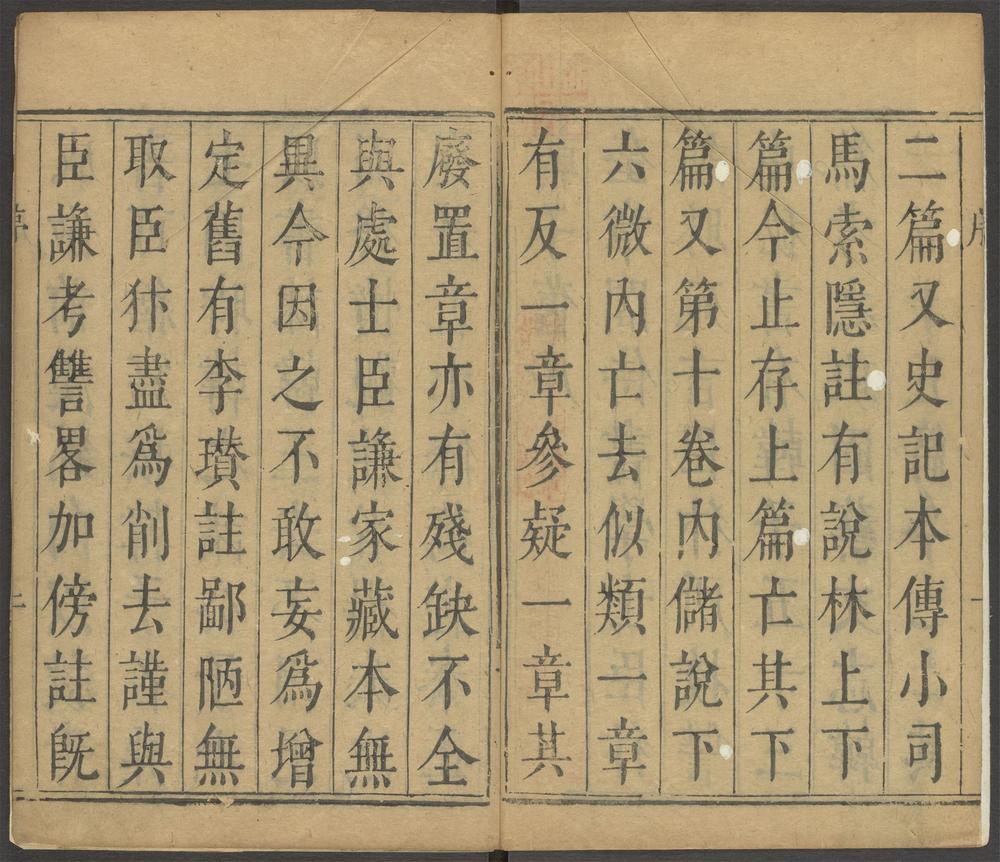 二篇又史記本傳小司
馬索隱註有說林上下
篇今止存上篇亡其下
篇又第十卷內儲說下
六微內亡去似類一章
有反一章參疑一章其
廢置章亦有殘缺不全
與處士臣謙家藏本無
異今因之不敢妄爲增
定舊有李瓚註鄙陋無
取臣犿盡爲削去謹與
臣謙考讐畧加傍註旣